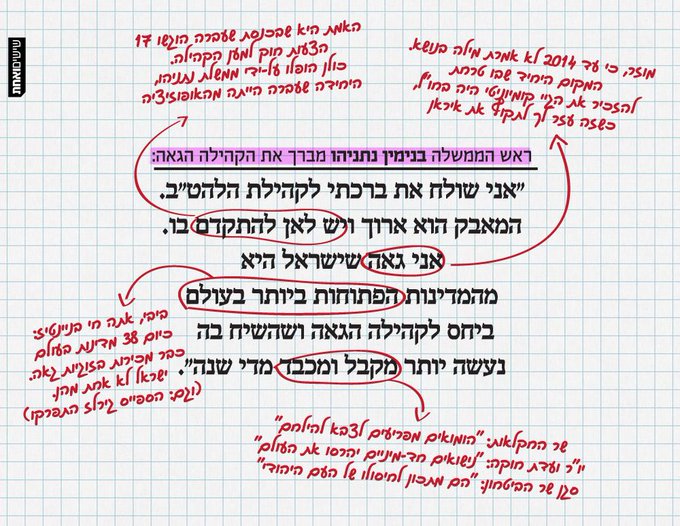 שישים ואחת
האמת היא שבכנסת שעברה הוגשו 17
הצעות חוק למען הקהילה.
כולן הופלו על-ידי ממשלת נתניהו,
היחידה שעברה הייתה מהאופוזיציה
מוזר, כי עד 2014 לא אמרת מילה בנושא.
המקום היחיד שבו טרחת
להזכיר את הגיי קומיוניטי היה בחו"ל,
כשזה עזר לך לתקוף את איראן
ראש הממשלה בנימין נתניהו מברך את הקהילה הגאה:
"אני שולח את ברכתי לקהילת הלהט"ב.
המאבק הוא ארוך ויש לאן להתקדם בו.
אני גאה שישראל היא
מהמדינות הפתוחות ביותר בעולם
ביחס לקהילה הגאה ושהשיח בה
נעשה יותר מקבל ומכבד מדי שנה".
ביבי, אתה חי בניינטיז:
כיום 38 מדינות בעולם
כבר מכירות בזוגיות גאה.
ישראל לא אחת מהן.
(וגם: הספייס גירלז התפרקו)
שר החקלאות: "הומואים מפריעים לצבא להילחם"
יו"ר ועדת חוקה: "נישואים חד-מיניים יהרסו את העולם"
סגן שר הביטחון: "הם מתכון לחיסולו של העם היהודי"